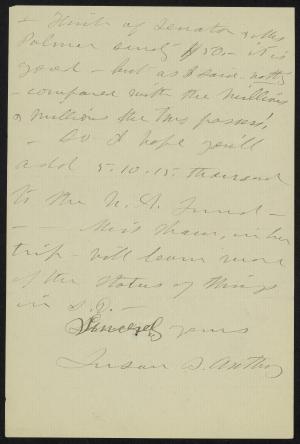 & Think of Senator & Mrs
Palmer sending $50 - it is
good - but as I said - nothing
- compared with the millions
& millions the two possess!
- So I hope you'll
add 5-10-15 thousand
to the N. A. Fund -
- - Miss Shaw, in her
trip - will learn more
of the status of things
in S. D. -
Sincerely yours
Susan B. Anthony